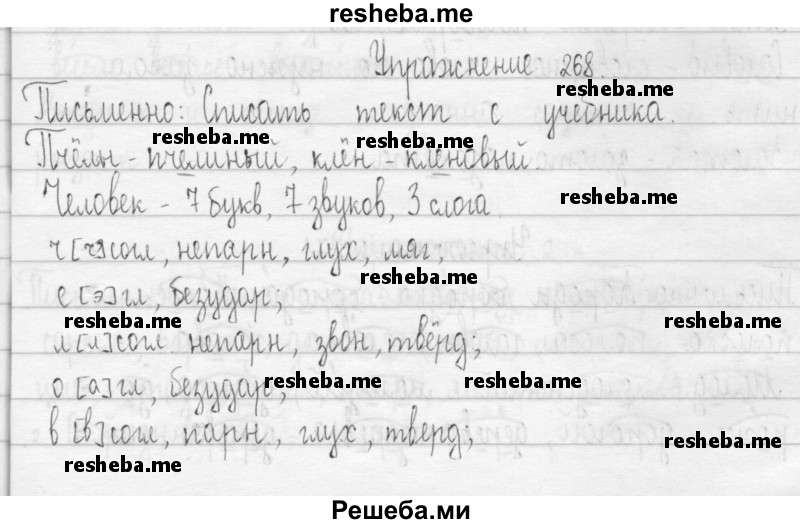 resheba.me
Упражнение 268.
Письменно: Списать текст с учебника.
resheba.me
resheba.me resheba.me
Пчёлы - пчелиный, клён - кленовый.
Человек - 7 букв, 7 звуков, 3 слога.
resheba.me
ч [ч'] согл, непарн, глух, мяг;
resheba.me
е [э] гл, безудар;
resheba.me resheba.me
л [л'] согл непарн, звон, твёрд;
о [а] гл, безудар;
resheba.me resheba.me
в [в] согл, парн, глух, тверд;
resheba.me
resheba.me
Решеба.ми